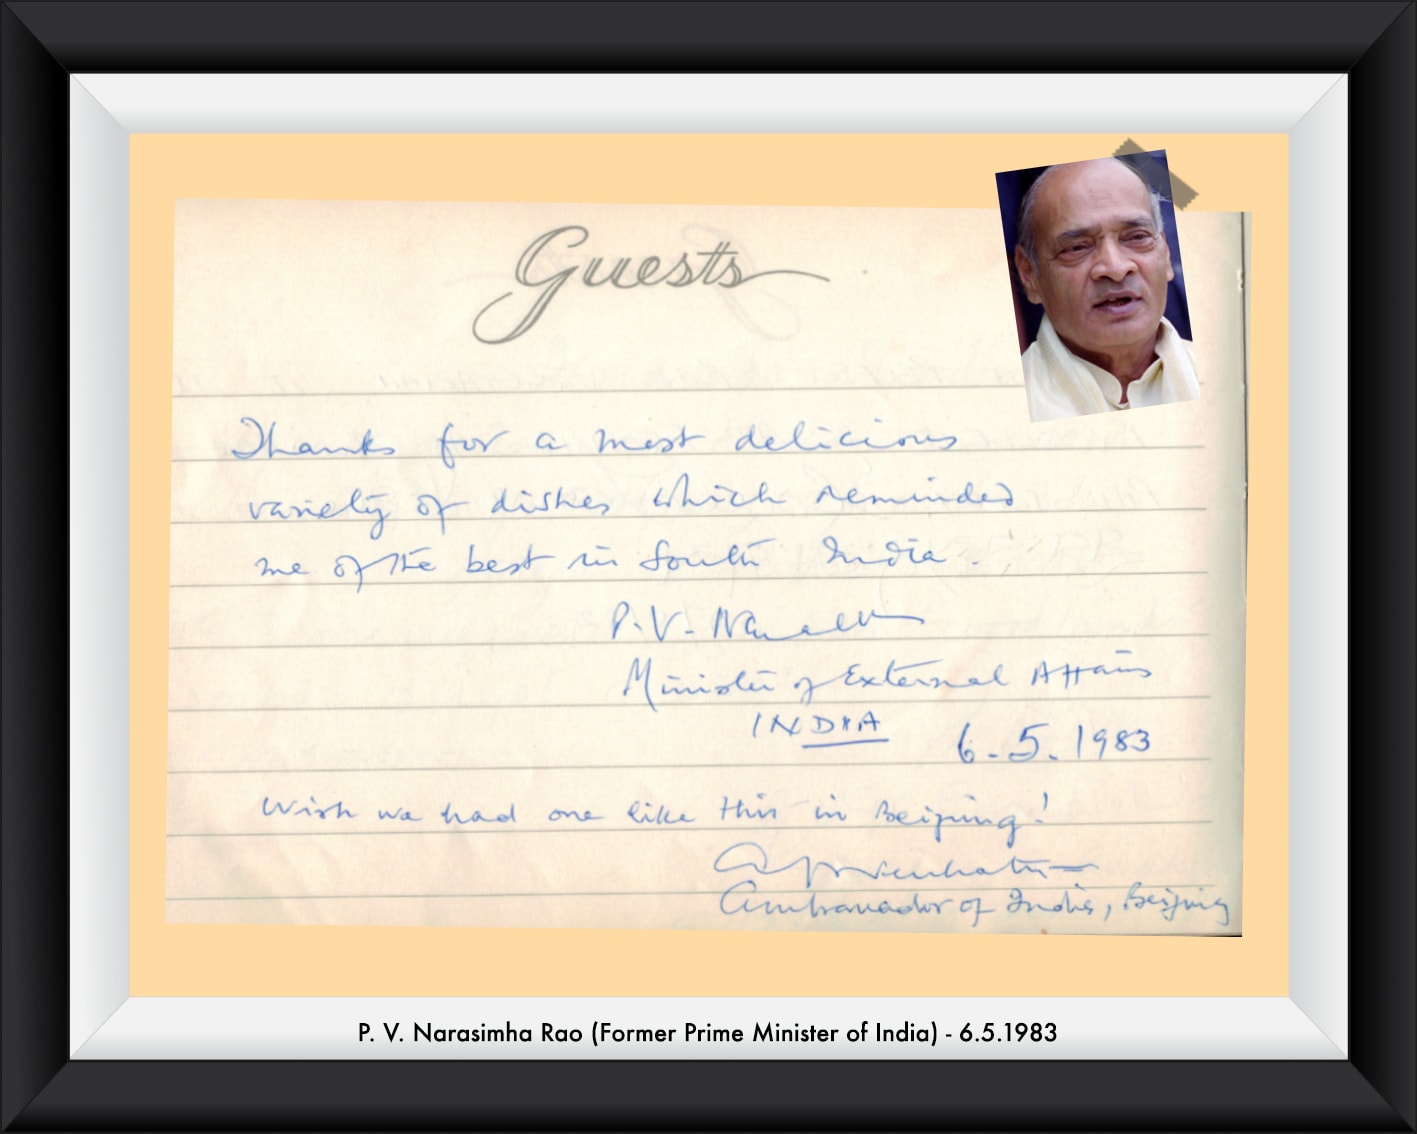 Guests
Thanks for a most delicious
variety of dishes which reminded
me of the best in South India.
P.V.
Minister of External Affairs
INDIA 6.5.1983
Wish we had one like this in Beijing!
Ambassador of India, Beijing
P. V. Narasimha Rao (Former Prime Minister of India) - 6.5.1983